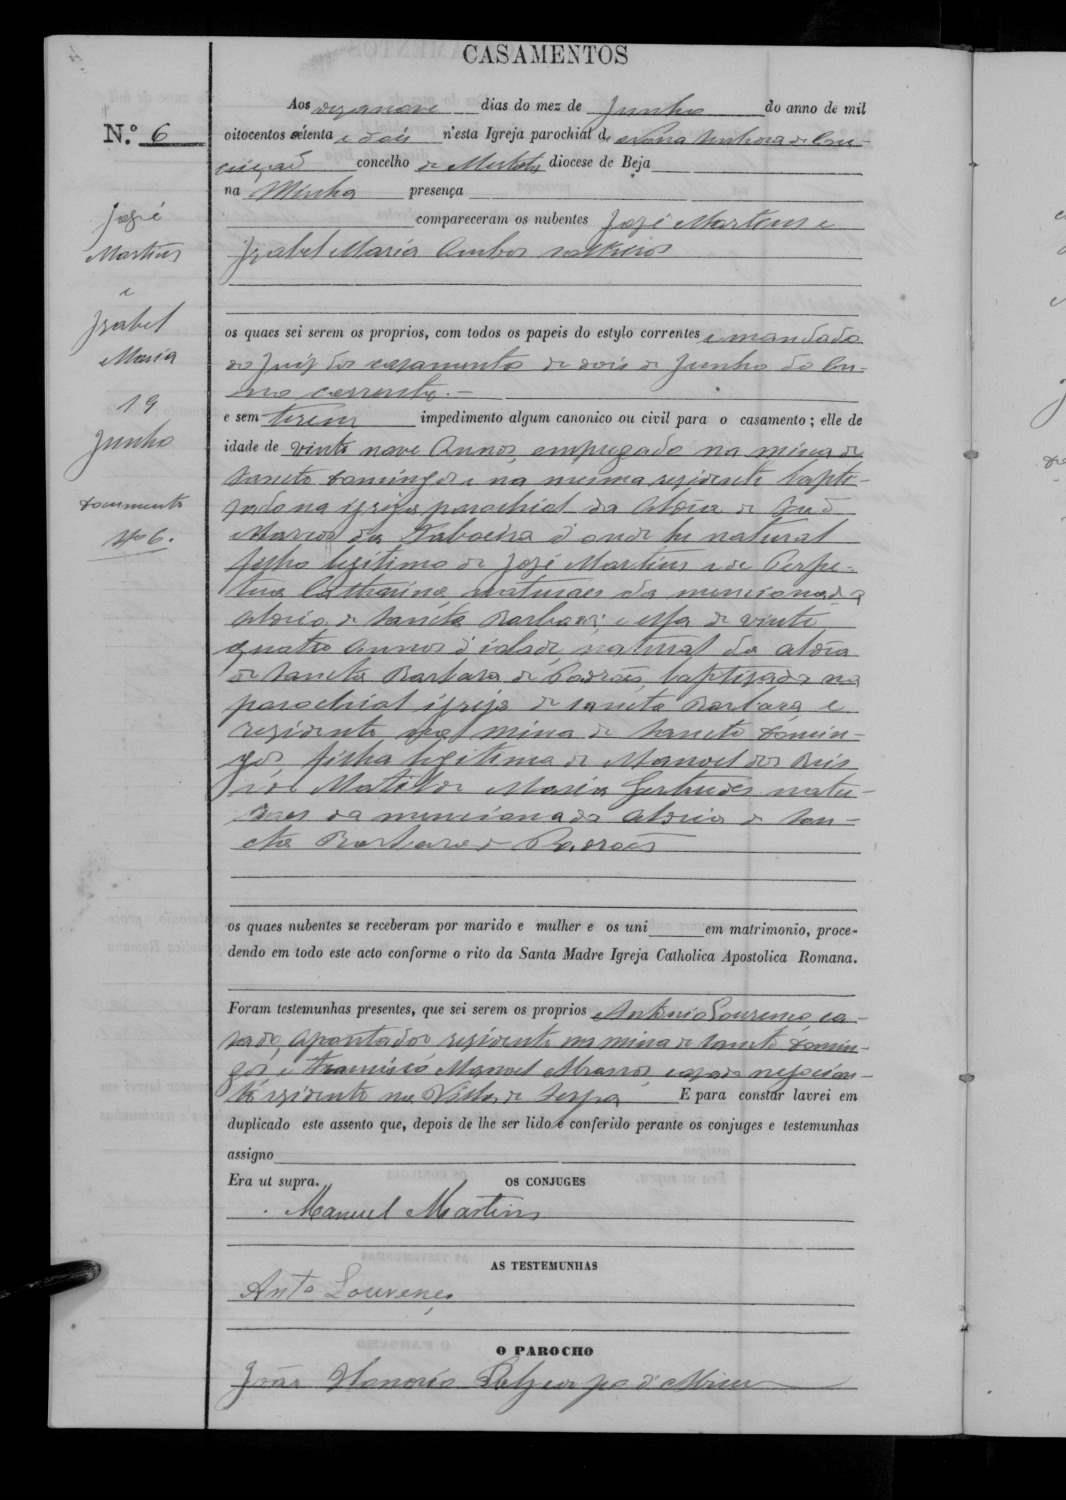 CASAMENTOS
Aos dezanove dias do mez de Junho do anno de mil
N.º 6
oitocentos setenta e dois n'esta Igreja parochial de Nossa Senhora da Con-
ceição concelho de Mertola diocese de Beja
na Minha presença
compareceram os nubentes José Martins e
Izabel Maria Ambos solteiros
José
Martins
e
Izabel
Maria
19
Junho
Documento
Nº 6.
os quaes sei serem os proprios, com todos os papeis do estylo correntes e mandado
do Juiz dos casamentos de dois de Junho do An-
no corrente.—
e sem terem impedimento algum canonico ou civil para o casamento; elle de
idade de vinte nove Annos, empregado na mina de
Sancto Domingos e na mesma residente bapti-
zado na igreja parochial da Aldeia de São
Marcos da Taboeira d'onde he natural
filho legitimo de José Martins e de Perpe-
tua Catharina naturaes da mencionada
aldeia de Sancta Barbara; e ella de vinte
quatro Annos d'idade, natural da aldeia
de Sancta Barbara de Padrões, baptizada na
parochial igreja de Sancta Barbara e
residente na mina de Sancto Domin-
gos, filha legitima de Manoel dos Reis
e de Matilde Maria Gertrudes natu-
raes da mencionada aldeia de San-
cta Barbara de Padrões
os quaes nubentes se receberam por marido e mulher e os uni em matrimonio, proce-
dendo em todo este acto conforme o rito da Santa Madre Igreja Catholica Apostolica Romana.
Foram testemunhas presentes, que sei serem os proprios Antonio Lourenço, ca-
sado, apontador residente na mina de Sancto Domin-
gos, e Francisco Manoel casado negocian-
te residente na Villa de Serpa E para constar lavrei em
duplicado este assento que, depois de lhe ser lido e conferido perante os conjuges e testemunhas
assigno
Era ut supra.
OS CONJUGES
Manuel Martins
AS TESTEMUNHAS
Antº Lourenço
O PAROCHO
João Honorio